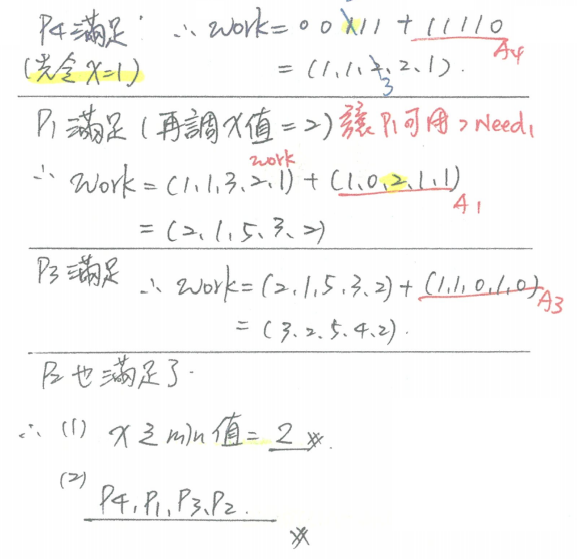 P4滿足 ∴ Work = 0 0 X 1 1 + 1 1 1 1 0
A4
(先令X=1) = (1, 1, 2, 2, 1).
3
P1滿足 (再調X值=2) 讓P1可用 > Need1
work
∴ Work = (1, 1, 3, 2, 1) + (1, 0, 2, 1, 1)
A1
= (2, 1, 5, 3, 2)
P3滿足 ∴ Work = (2, 1, 5, 3, 2) + (1, 1, 0, 1, 0)
A3
= (3, 2, 5, 4, 2).
P2也滿足了.
∴ (1) X之min值 = 2 ※.
(2) P4, P1, P3, P2.
※